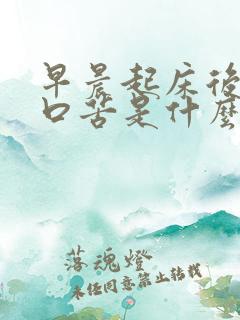 早晨起床後
口苦是什麼
落魂燈
未经同意禁止转载